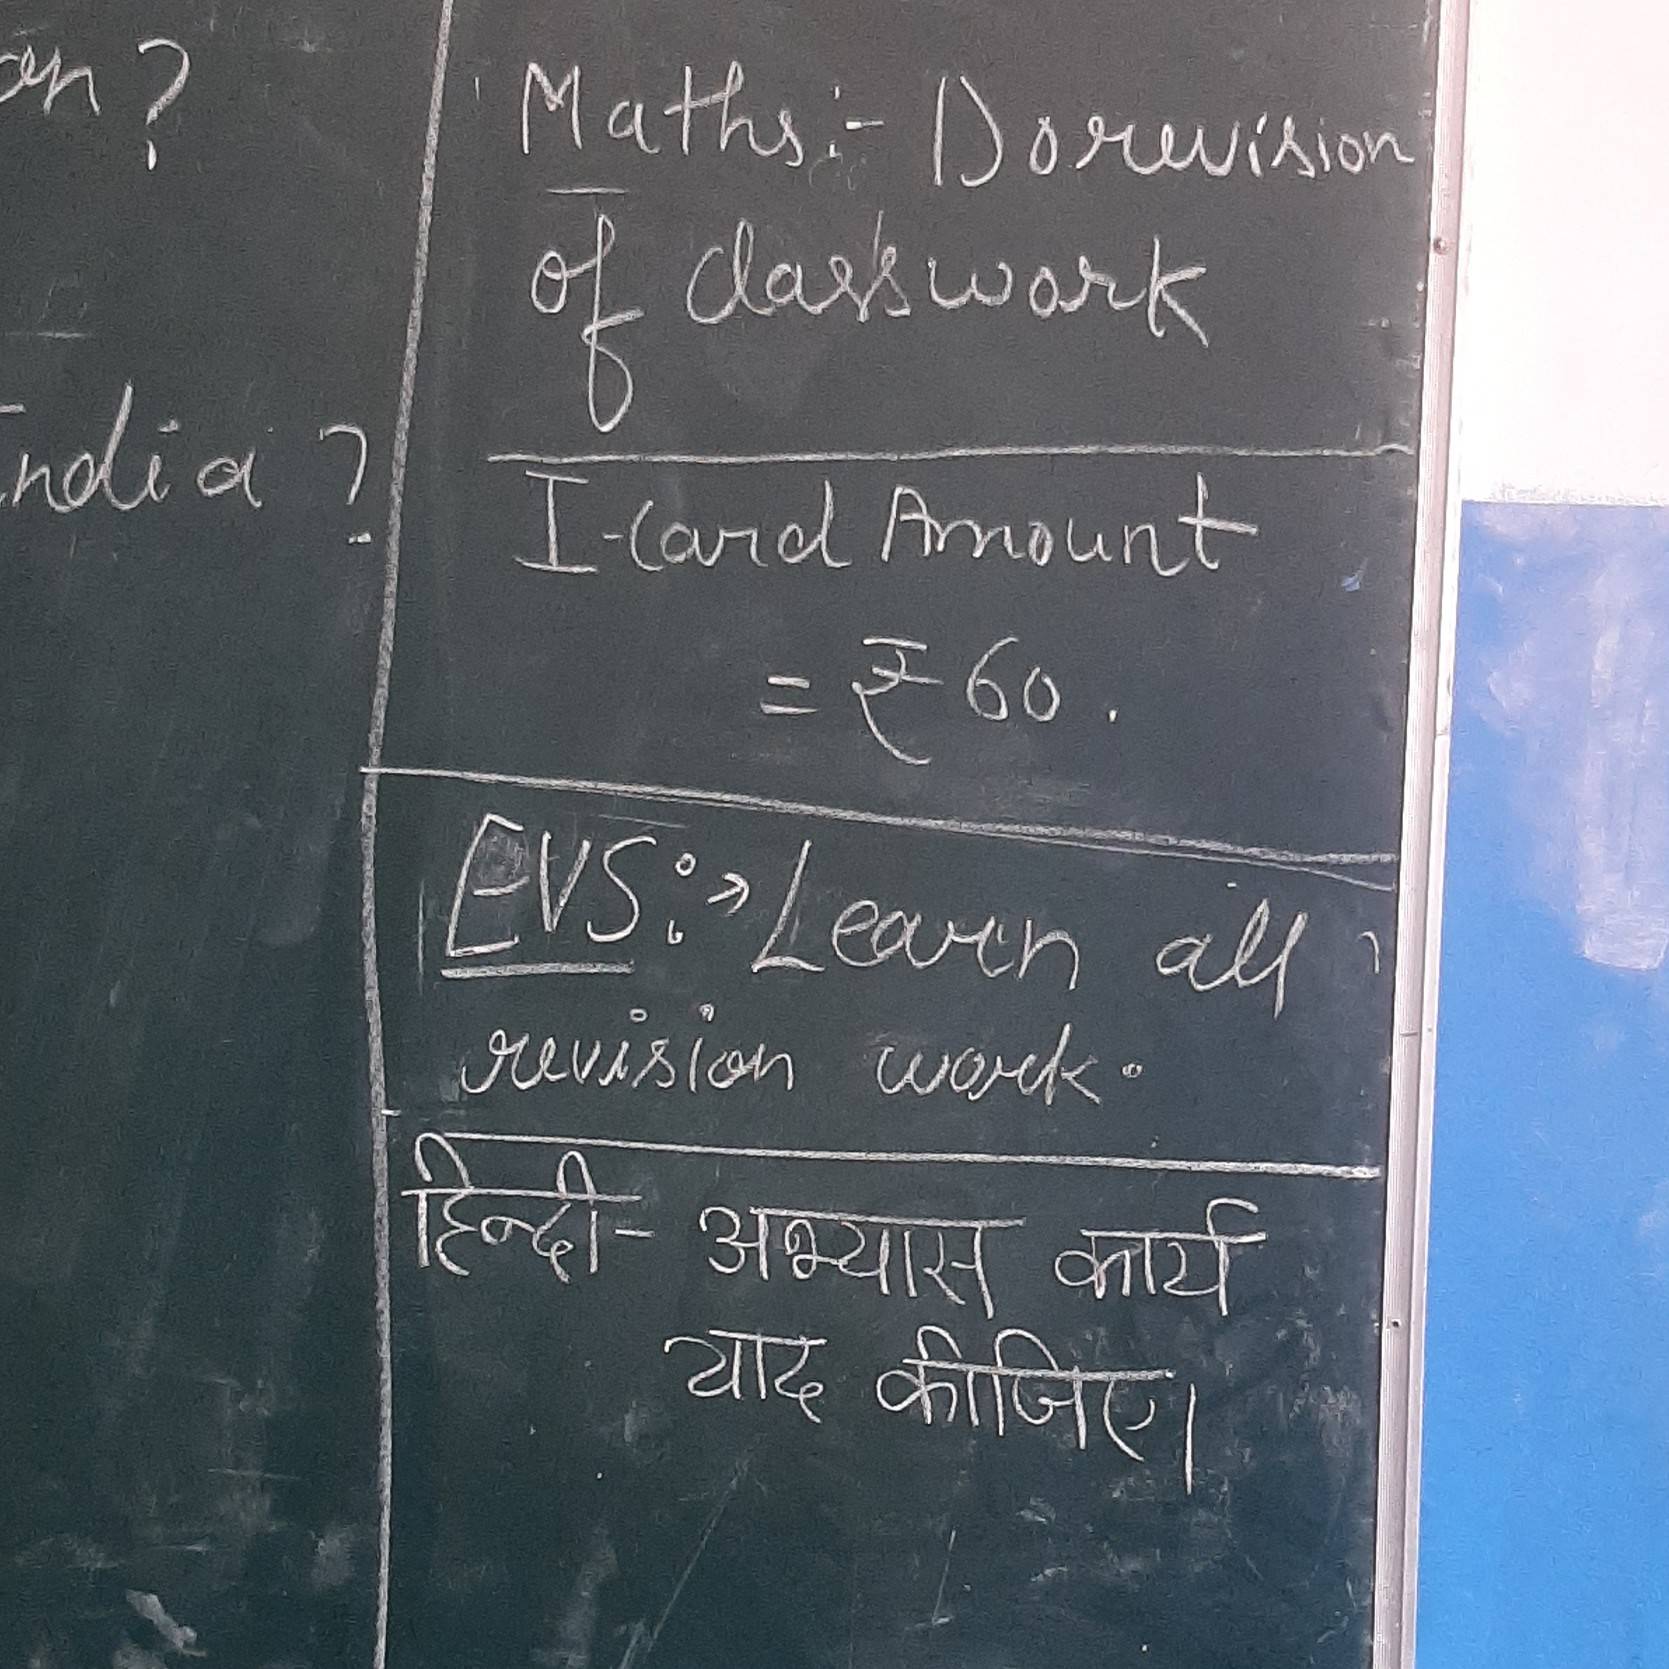 on?
India?
Maths:- Do revision
of classwork
I-Card Amount
= ₹ 60.
EVS:→ Learn all
revision work.
हिन्दी- अभ्यास कार्य
याद कीजिए।